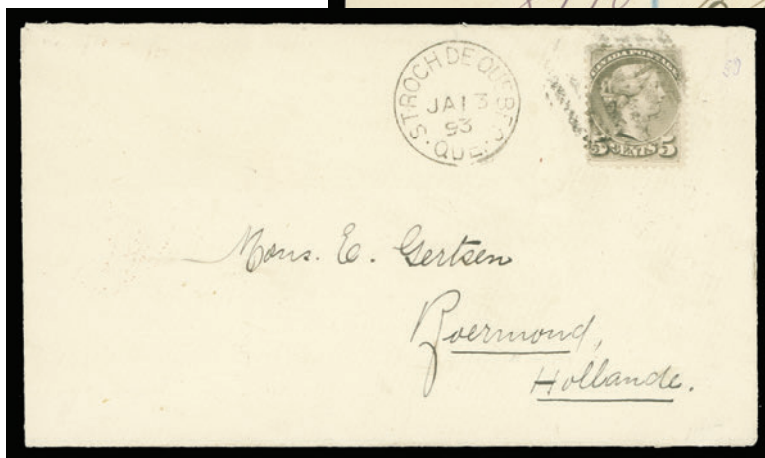 ST. ROCH DE QUEBEC
JA 13
93
QUE.
CANADA POSTAGE
5 CENTS 5
59
Mons. E. Gertsen
Roermond,
Hollande.